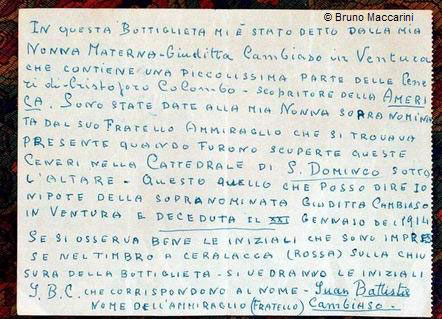 © Bruno Maccarini
IN QUESTA BOTTIGLIETA MI È STATO DETTO DALLA MIA
NONNA MATERNA - Giuditta Cambiaso in Ventura
CHE CONTIENE UNA PICCOLISSIMA PARTE DELLE CENE
RI di - Cristoforo COLOMBO - SCOPRITORE DELLA AMERI
CA. SONO STATE DATE ALLA MIA NONNA SOPRANOMINA
TA DAL SUO FRATELLO AMMIRAGLIO CHE SI TROVAVA
PRESENTE QUANDO FURONO SCUPERTE QUESTE
CENERI NELLA CATTEDRALE DI S. DOMINGO SOTTO
L'ALTARE - QUESTO QUELLO CHE POSSO DIRE IO
NIPOTE DELLA SOPRANOMINATA GIUDITTA CAMBIASO
IN VENTURA E DECEDUTA IL XXI GENNAIO DEL 1914
SE SI OSSERVA BENE LE INIZIALI CHE SONO IMPRES
SE NEL TIMBRO A CERALACCA (ROSSA) SULLA CHIU
SURA DELLA BOTTIGLIETA - SI VEDRANNO LE INIZIALI
J.B.C. CHE CORRISPONDONO AL NOME - Juan Battista
NOME DELL'AMMIRAGLIO (FRATELLO) CAMBIASO -